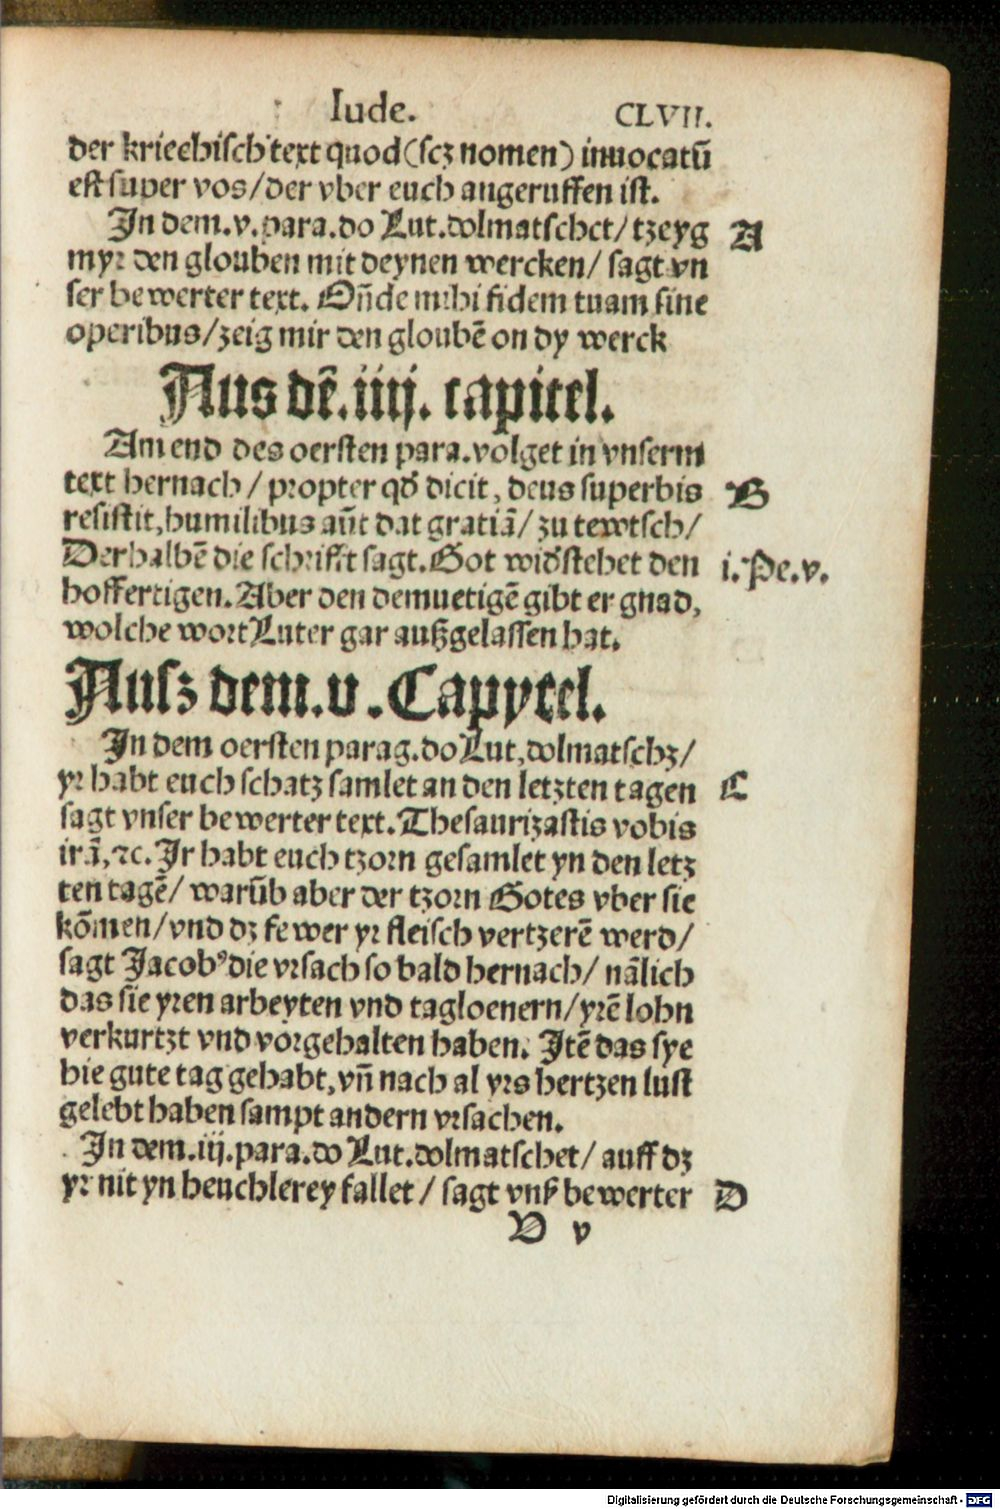 Iude. CLVII.
der kriechisch text quod (scz nomen) inuocatū
est super vos/ der vber euch angeruffen ist.
In dem .v. para. do Lut. dolmatschet/ tzeyg A
myr den glouben mit deynen wercken/ sagt vn
ser bewerter text. Oñde mihi fidem tuam sine
operibus/ zeig mir den gloubē on dy werck
Aus dē .iiij. capitel.
Am end des oersten para. volget in vnserm
text hernach/ propter qđ dicit, deus superbis B
resistit, humilibus aūt dat gratiā/ zu tewtsch/
Derhalbē die schrifft sagt. Got widstehet den i. Pe. v.
hoffertigen. Aber den demuetigē gibt er gnad,
wolche wort Luter gar außgelassen hat.
Ausz dem .v. Capytel.
In dem oersten parag. do Lut, dolmatschz/
yr habt euch schatz samlet an den letzten tagen C
sagt vnser bewerter text. Thesaurizastis vobis
irā, ⁊c. Jr habt euch tzorn gesamlet yn den letz
ten tagē/ warūb aber der tzorn Gotes vber sie
kōmen/ vnd dz fewer yr fleisch vertzerē werd/
sagt Jacobꝰ die vrsach so bald hernach/ nālich
das sie yren arbeyten vnd tagloenern/ yrē lohn
verkurtzt vnd vorgehalten haben. Jtē das sye
hie gute tag gehabt, vñ nach al yrs hertzen lust
gelebt haben sampt andern vrsachen.
In dem .iij. para. do Lut. dolmatschet/ auff dz
yr nit yn heuchlerey fallet/ sagt vnß bewerter D
V v
Digitalisierung gefördert durch die Deutsche Forschungsgemeinschaft - DFG